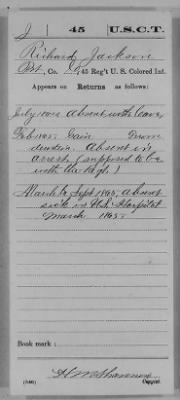 J 45 U.S.C.T.
Richard Jackson
Pvt., Co. 45 Reg't U. S. Colored Inf.
Appears on Returns as follows:
July absent with leave
Feb 1865. Gain
Absent in
arrest (supposed to be
with the Regt.)
March to Sept 1865, absent
sick in U.S. Hospital
March 1865
Book mark:
Copyist.